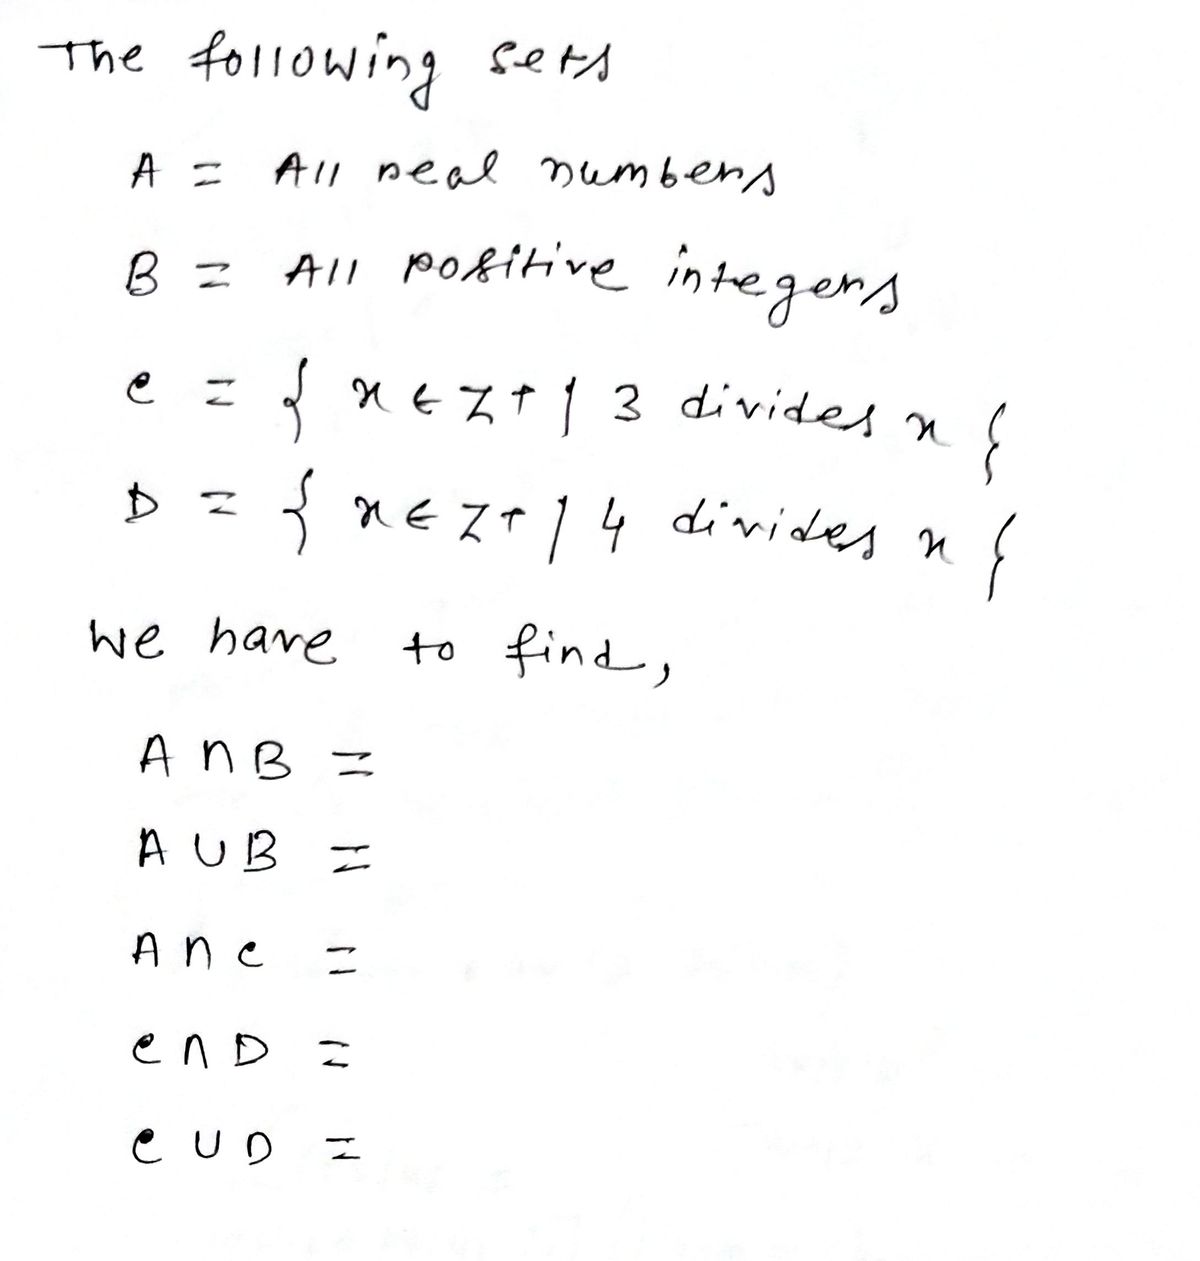 The following sets
A = All real numbers
B = All positive integers
C = { x ∈ Z+ | 3 divides x }
D = { x ∈ Z+ | 4 divides x }
We have to find,
A ∩ B =
A ∪ B =
A ∩ C =
C ∩ D =
C ∪ D =